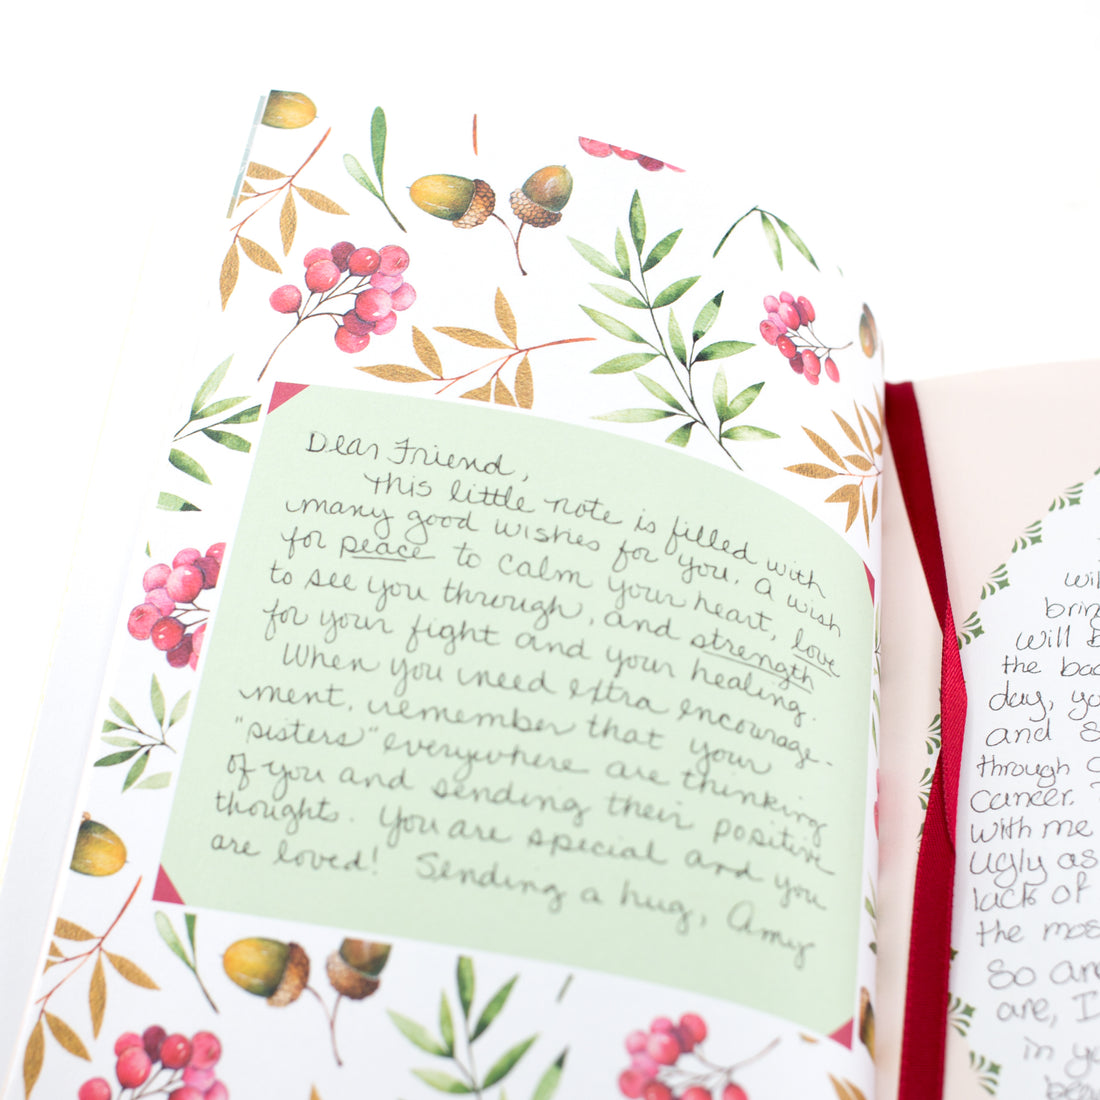 Dear Friend,
This little note is filled with
many good wishes for you. A wish
for peace to calm your heart, love
to see you through, and strength
for your fight and your healing.
When you need extra encourage-
ment, remember that your
"sisters" everywhere are thinking
of you and sending their positive
thoughts. You are special and you
are loved! Sending a hug, Amy
will
the
day,
and
through
Cancer.
with me
Ugly as
lack of
the
So
are, I
in